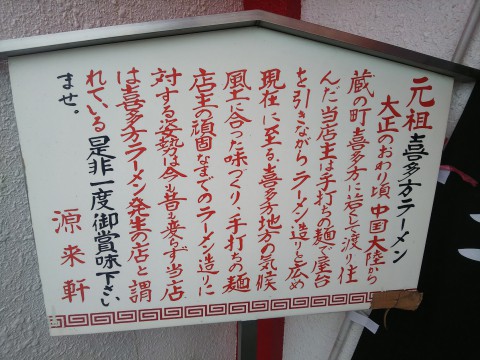 元祖喜多方ラーメン
大正のおわり頃中国大陸から
蔵の町喜多方に若くして渡り住
んだ当店主は手打ちの麺で屋台
を引きながらラーメン造りと広め
現在に至る。喜多方地方の気候
風土に合った味づくり、手打ちの麺
店主の頑固なまでのラーメン造りに
対する姿勢は今も昔も変らず当店
は喜多方ラーメン発生の店と謂
れている是非一度御賞味下さい
ませ。
源来軒